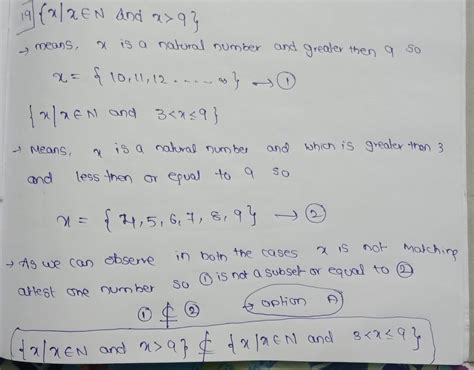 19) {x/x∈N and x>9}
→ means, x is a natural number and greater then 9 so
x = { 10,11,12 ..... ∞} → ①
{x/x∈N and 3<x≤9}
→ Means, x is a natural number and which is greater than 3
and less then or equal to 9 so
x = { 4,5,6,7,8,9} → ②
→ As we can observe in both the cases x is not matching
atlest one number so ① is not a subset or equal to ②
① ⊄ ② → option A
{x/x∈N and x>9} ⊄ {x/x∈N and 3<x≤9}